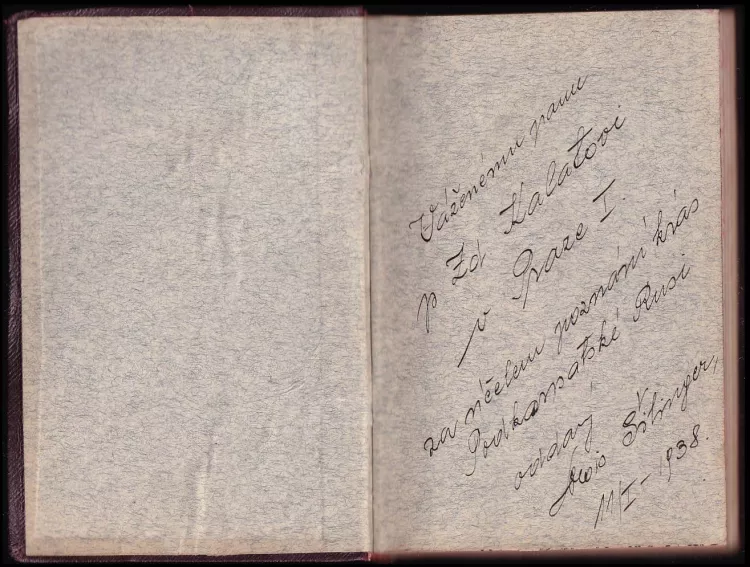 Váženému panu
p Zd Kalatovi
v Praze I.
za účelem poznání krás
Podkarpatské Rusi
oddaný
Alois Šilinger,
11/I - 1938.